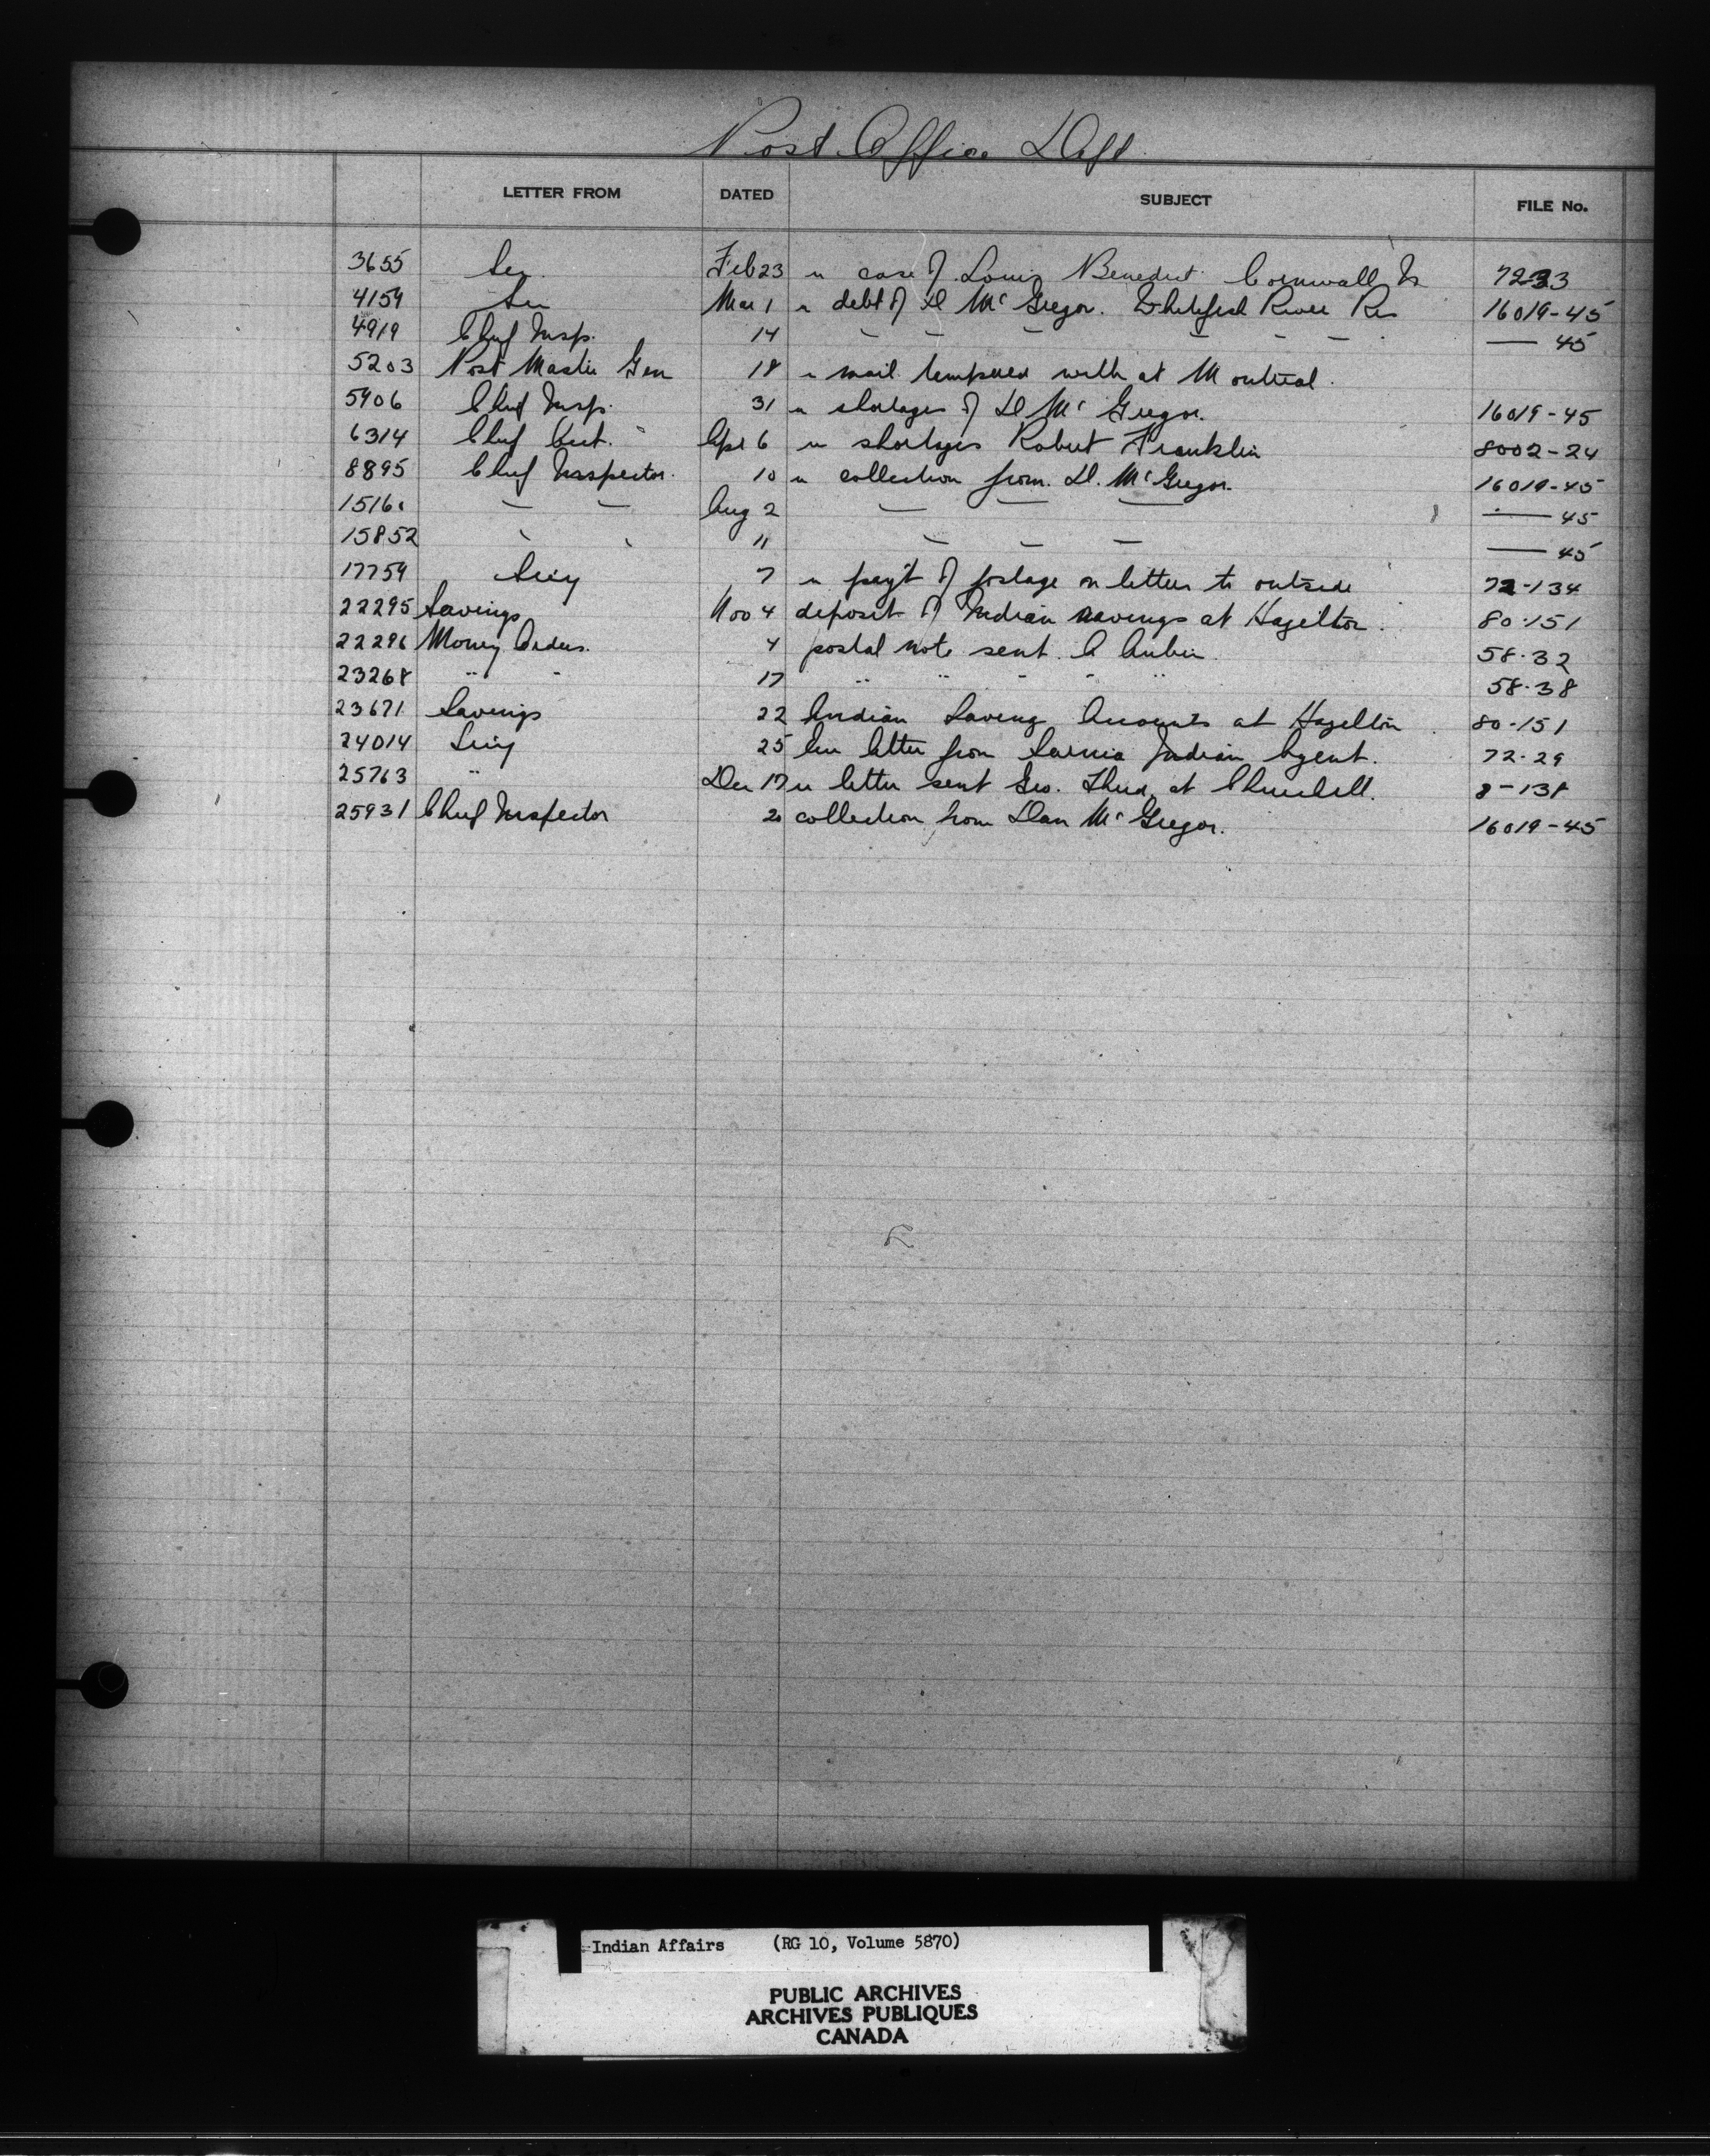 Post Office Dept.
LETTER FROM DATED SUBJECT FILE No.
3655 Sec. Feb 23 re case of Louis Benedict Cornwall Is 7233
4159 Sec Mar 1 re debt of D McGregor. Whitefish River Res 16019-45
4919 Chief Insp. 14 — — — — — — — 45
5203 Post Master Gen 18 re mail tempered with at Montreal.
5906 Chief Insp. 31 re shortages of D McGregor. 16019-45
6314 Chief Acct. Apr 6 re shortages Robert Franklin 8002-24
8895 Chief Inspector. 10 re collection from. D. McGregor. 16019-45
1516 — — Aug 2 — — — — 45
15852 " " 11 — — — — 45
17759 Secy 7 re pay't of postage on letters to outside 72-134
22295 Savings Nov 4 deposit of Indian savings at Hazelton. 80-151
22296 Money Orders. 4 postal note sent. C Aubin. 58-32
23268 " " 17 " " " " " 58-38
23671 Savings 22 Indian Saving Accounts at Hazelton. 80-151
24014 Secy 25 letter from Sarnia Indian Agent. 72-29
25763 " Dec 17 re letter sent Geo. at Churchill. 8-138
25931 Chief Inspector 20 collection from Dan McGregor. 16019-45
Indian Affairs (RG 10, Volume 5870)
PUBLIC ARCHIVES
ARCHIVES PUBLIQUES
CANADA